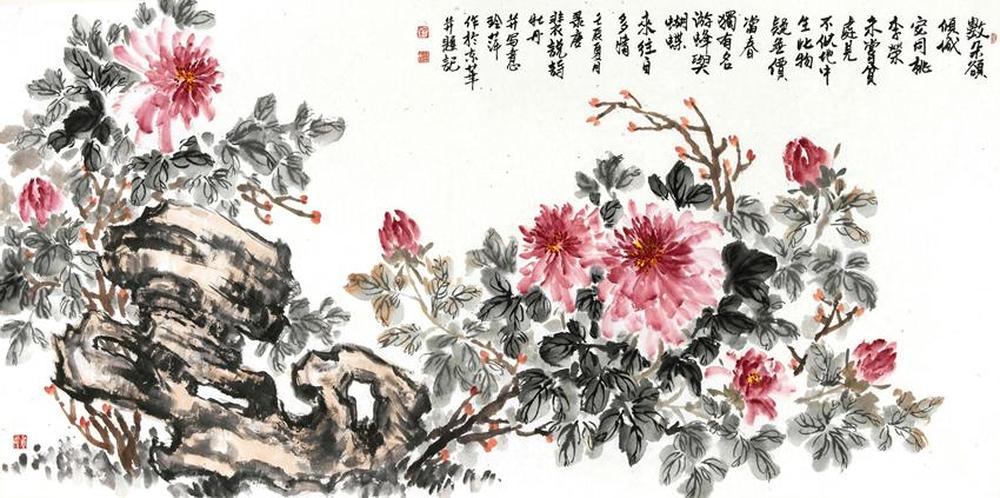 數朵欲
傾城
安同桃
李榮
未嘗貧
處見
不似地中
生此物
疑無價
當春
獨有名
游蜂與
蝴蝶
來往自
多情
壬辰夏月
錄唐
裴説詩
牡丹
并寫意
玲萍
作於京華
并題記